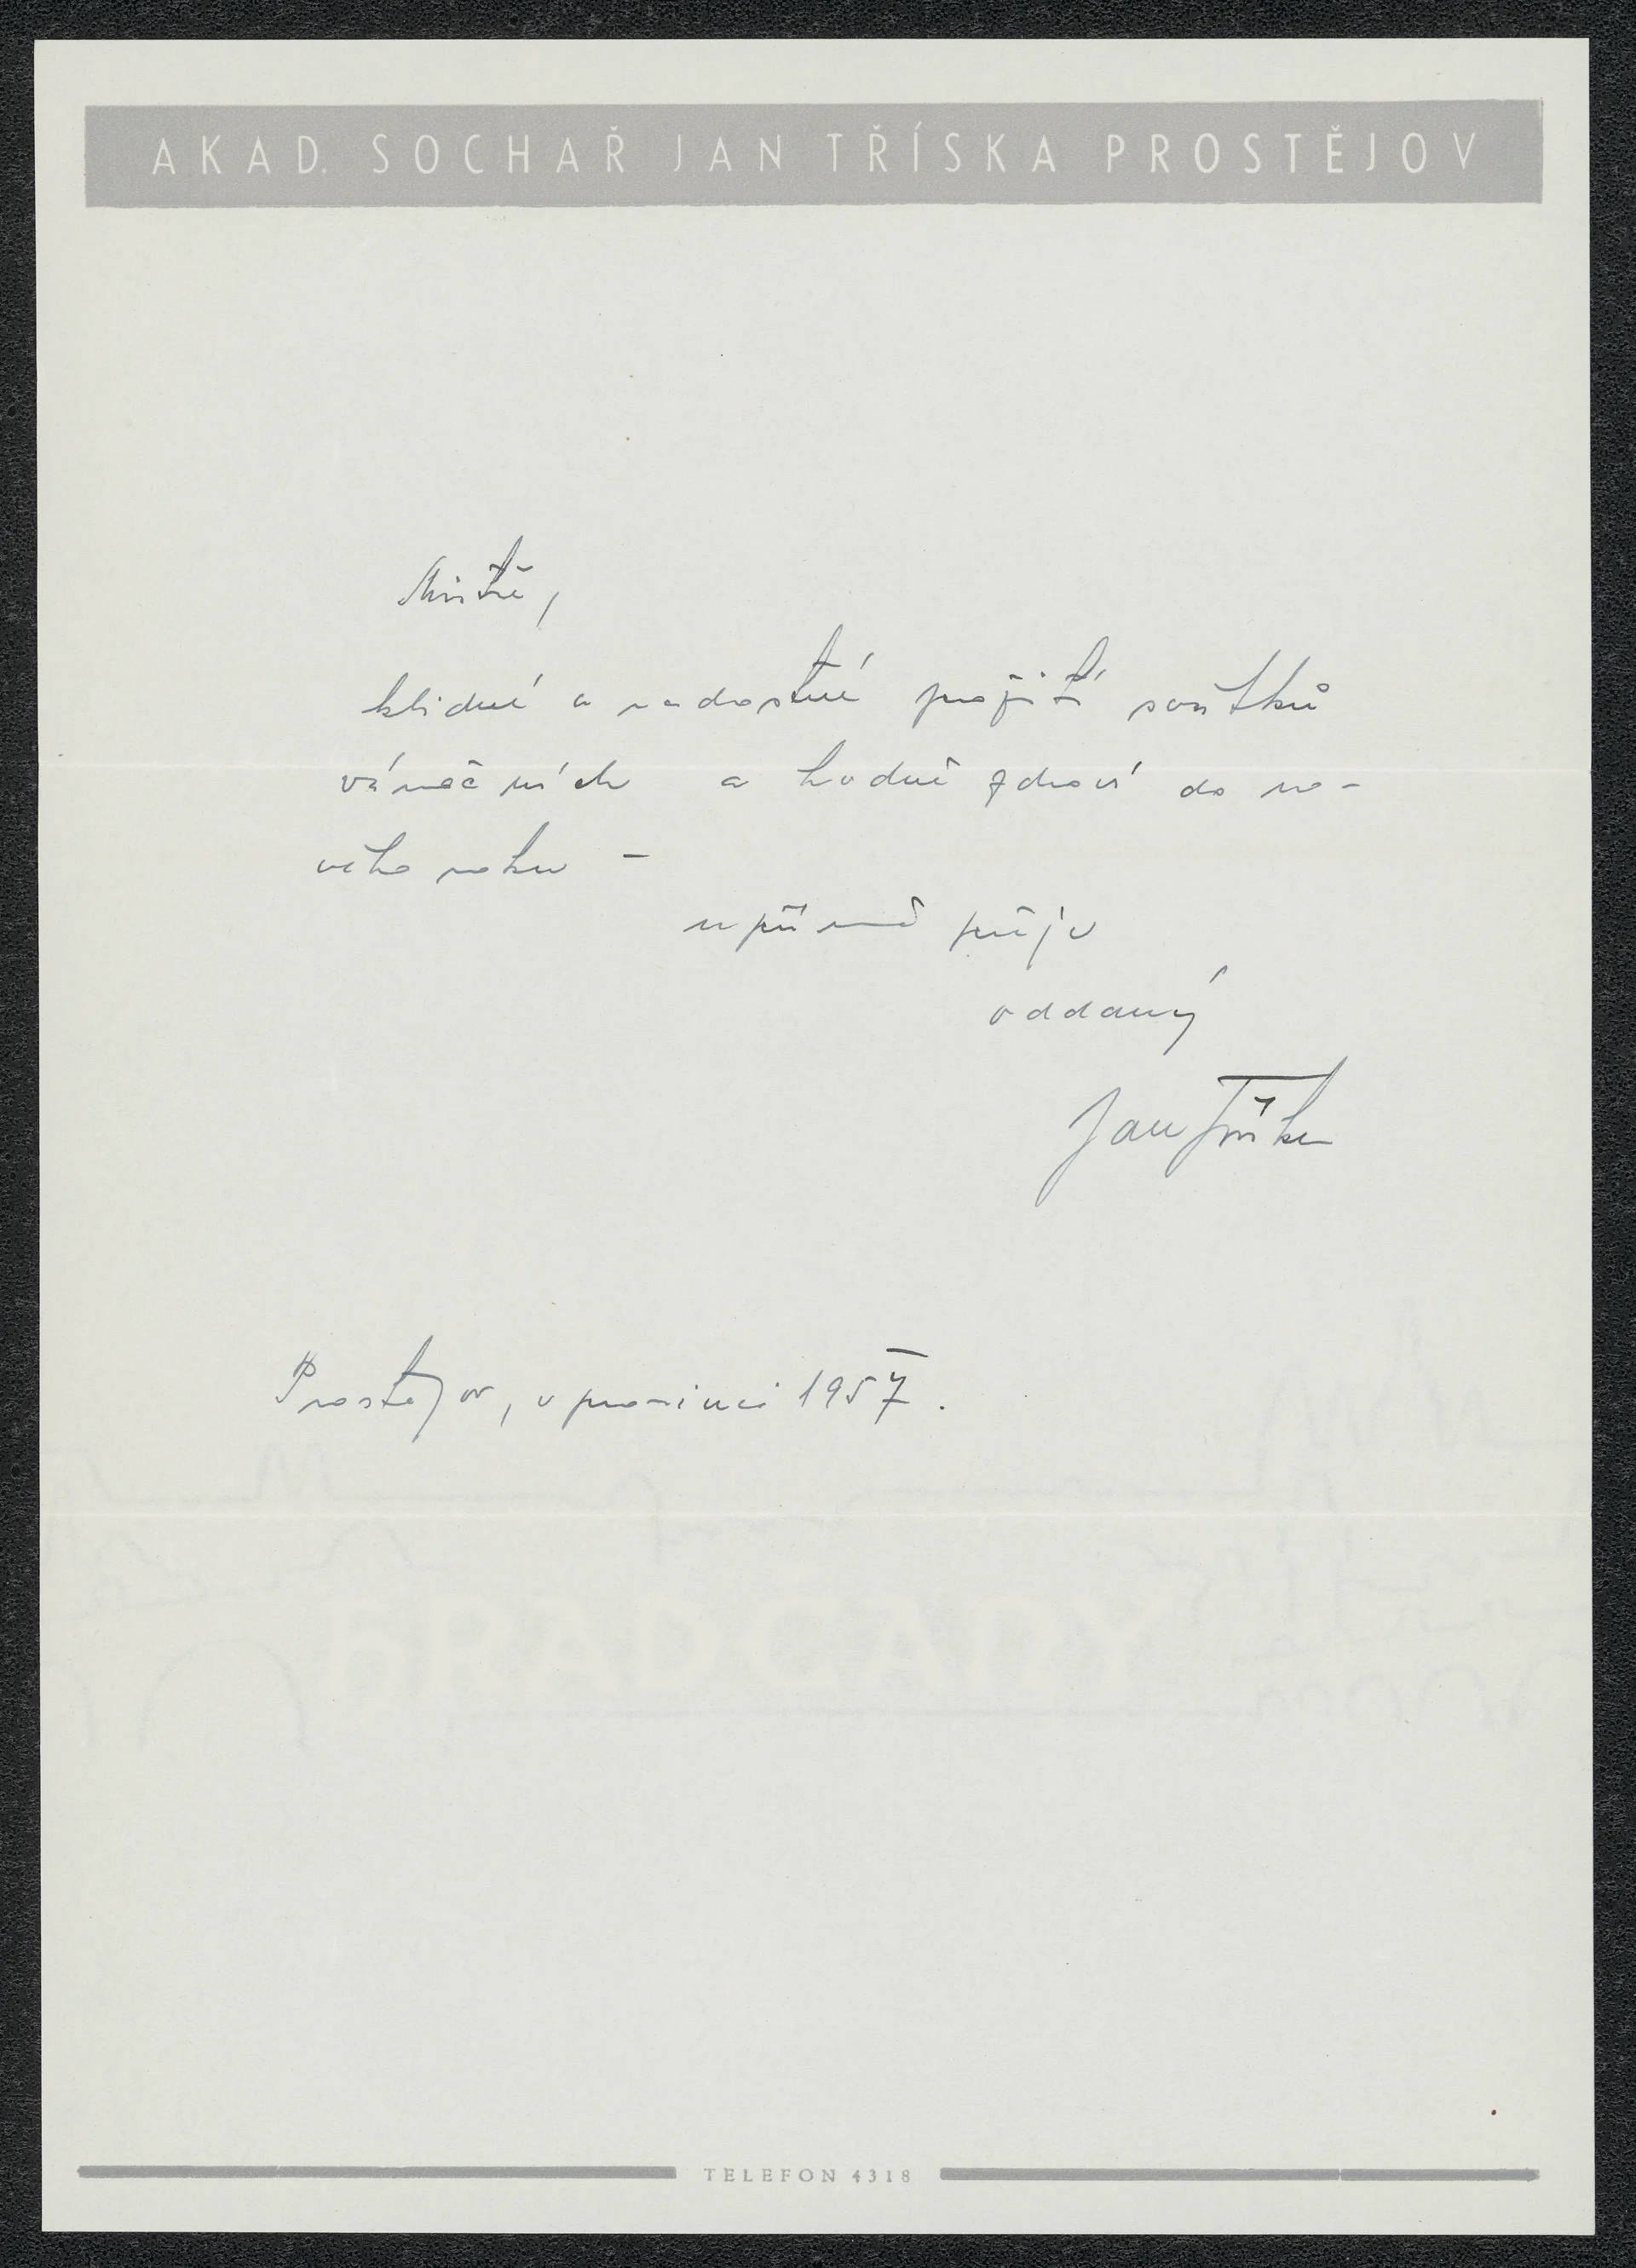 AKAD. SOCHAŘ JAN TŘÍSKA PROSTĚJOV
Mistře,
klidné a radostné prožití svátků
vánočních a hodně zdraví do no-
vého roku –
upřímně přeje
oddaný
Jan Tříska
Prostějov, v prosinci 1957.
HRADČANY
TELEFON 4318